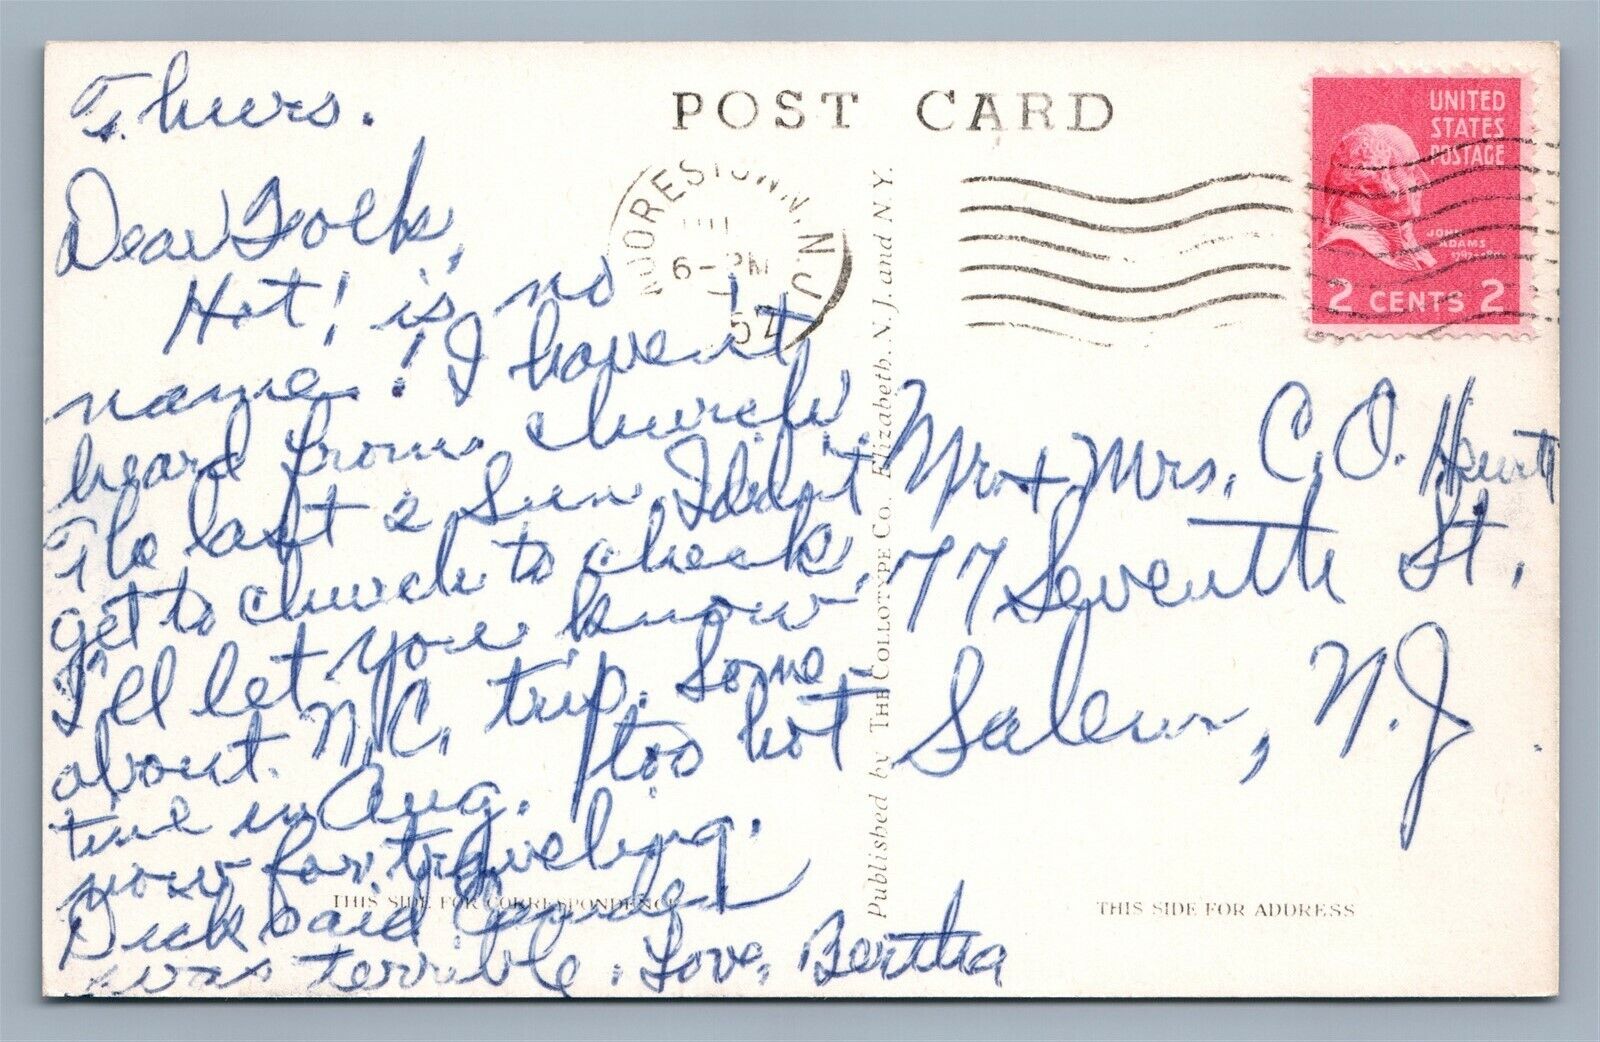 Thurs.
Dear Folks,
Hot! is no
name! I haven't
heard from church
the last 2 Sun. I didn't
get to church to check.
I'll let you know
about N.C. trip. Some-
time in Aug. Too hot
now for traveling.
Dick said Camden
was terrible. Love, Bertha
POST CARD
MOORESTOWN, N.J.
6-PM
UNITED
STATES
POSTAGE
JOHN
ADAMS
2 CENTS 2
Mr. + Mrs. C. O.
77 Seventh St.
Salem, N.J.
Published by THE COLLOTYPE CO. Elizabeth, N. J. and N.Y.
THIS SIDE FOR CORRESPONDENCE
THIS SIDE FOR ADDRESS